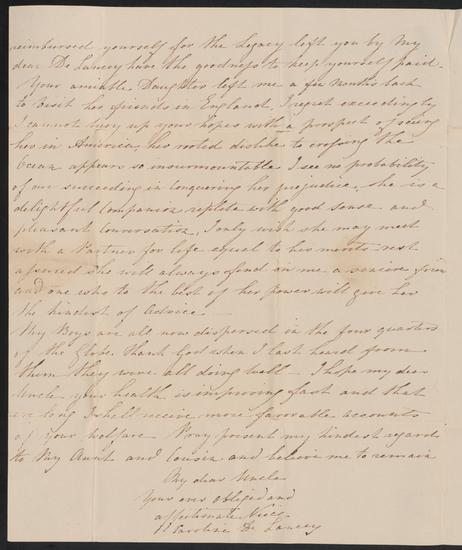 reimbursed yourself for the Legacy left you by My
dear De Lancey have the goodness to keep yourself paid.
Your amiable Daughter left me a few Months back
to visit her friends in England, I regret exceedingly
I cannot buoy up your hopes with a prospect of seeing
her in America, her rooted dislike to crossing the
Ocean appears so insurmountable I see no probability
of our succeeding in conquering her prejudice, She is a
delightful Companion replete with good sense and
pleasant Conversation, I only wish she may meet
with a Partner for life equal to her merits rest
assured she will always find in me a sincere friend
and one who to the best of her power will give her
the kindest of Advice —
My Boys are all now dispersed in the four quarters
of the Globe. thank God when I last heard from
them they were all doing well — I hope my dear
Uncle your health is improving fast and that
ere long I shall receive more favorable accounts
of your welfare Pray present my kindest regards
to My Aunt and Cousin and believe me to remain
My dear Uncle
Your ever obliged and
affectionate Niece
Caroline De Lancey